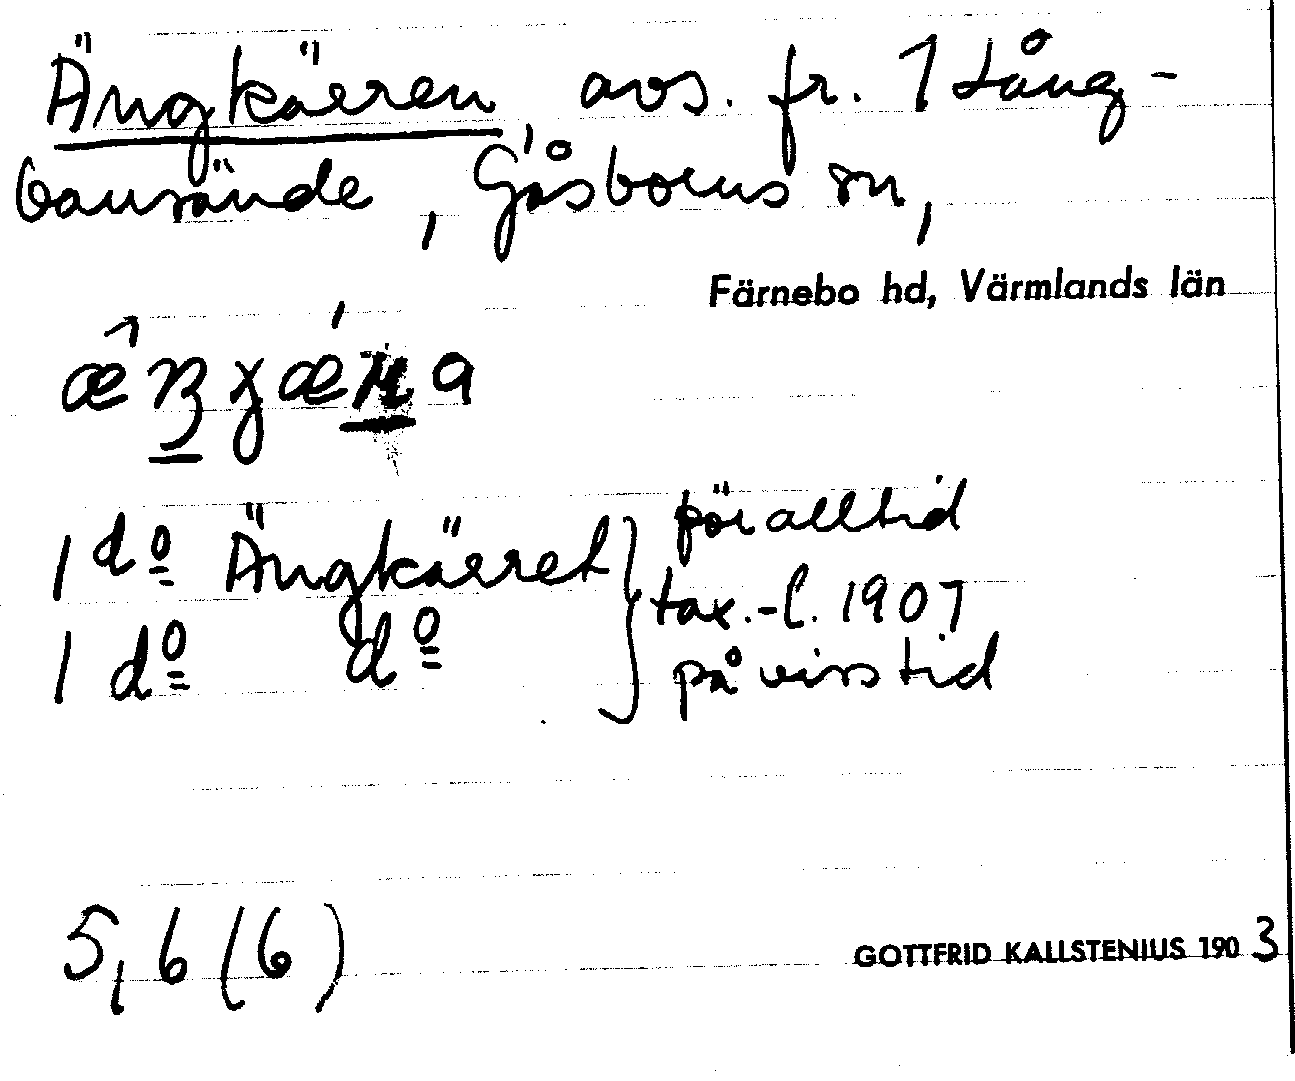 Ängkärren avs. fr. 1 Lång-
bansände, Gåsborns sn,
Färnebo hd, Värmlands län
1 dº Ängkärret för alltid
tax.-l. 1907
1 dº dº på viss tid
5, 6 (6)
GOTTFRID KALLSTENIUS 1903